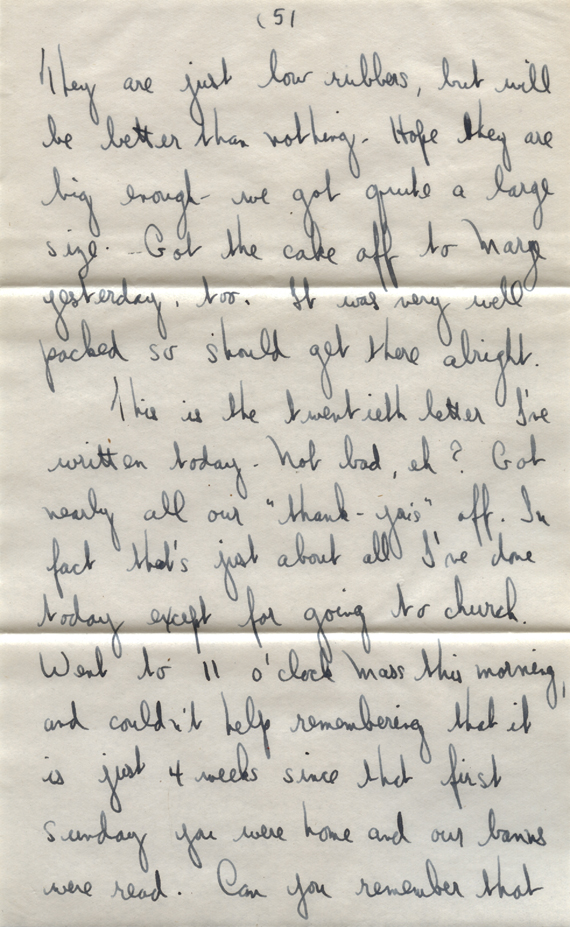 (5)
They are just low rubbers, but will
be better than nothing. Hope they are
big enough - we got quite a large
size. - Got the cake off to Marge
yesterday, too. It was very well
packed so should get there alright.
This is the twentieth letter I've
written today. Not bad, eh? Got
nearly all our "thank-you's" off. In
fact that's just about all I've done
today except for going to church.
Went to 11 o'clock Mass this morning,
and couldn't help remembering that it
is just 4 weeks since that first
Sunday you were home and our banns
were read. Can you remember that